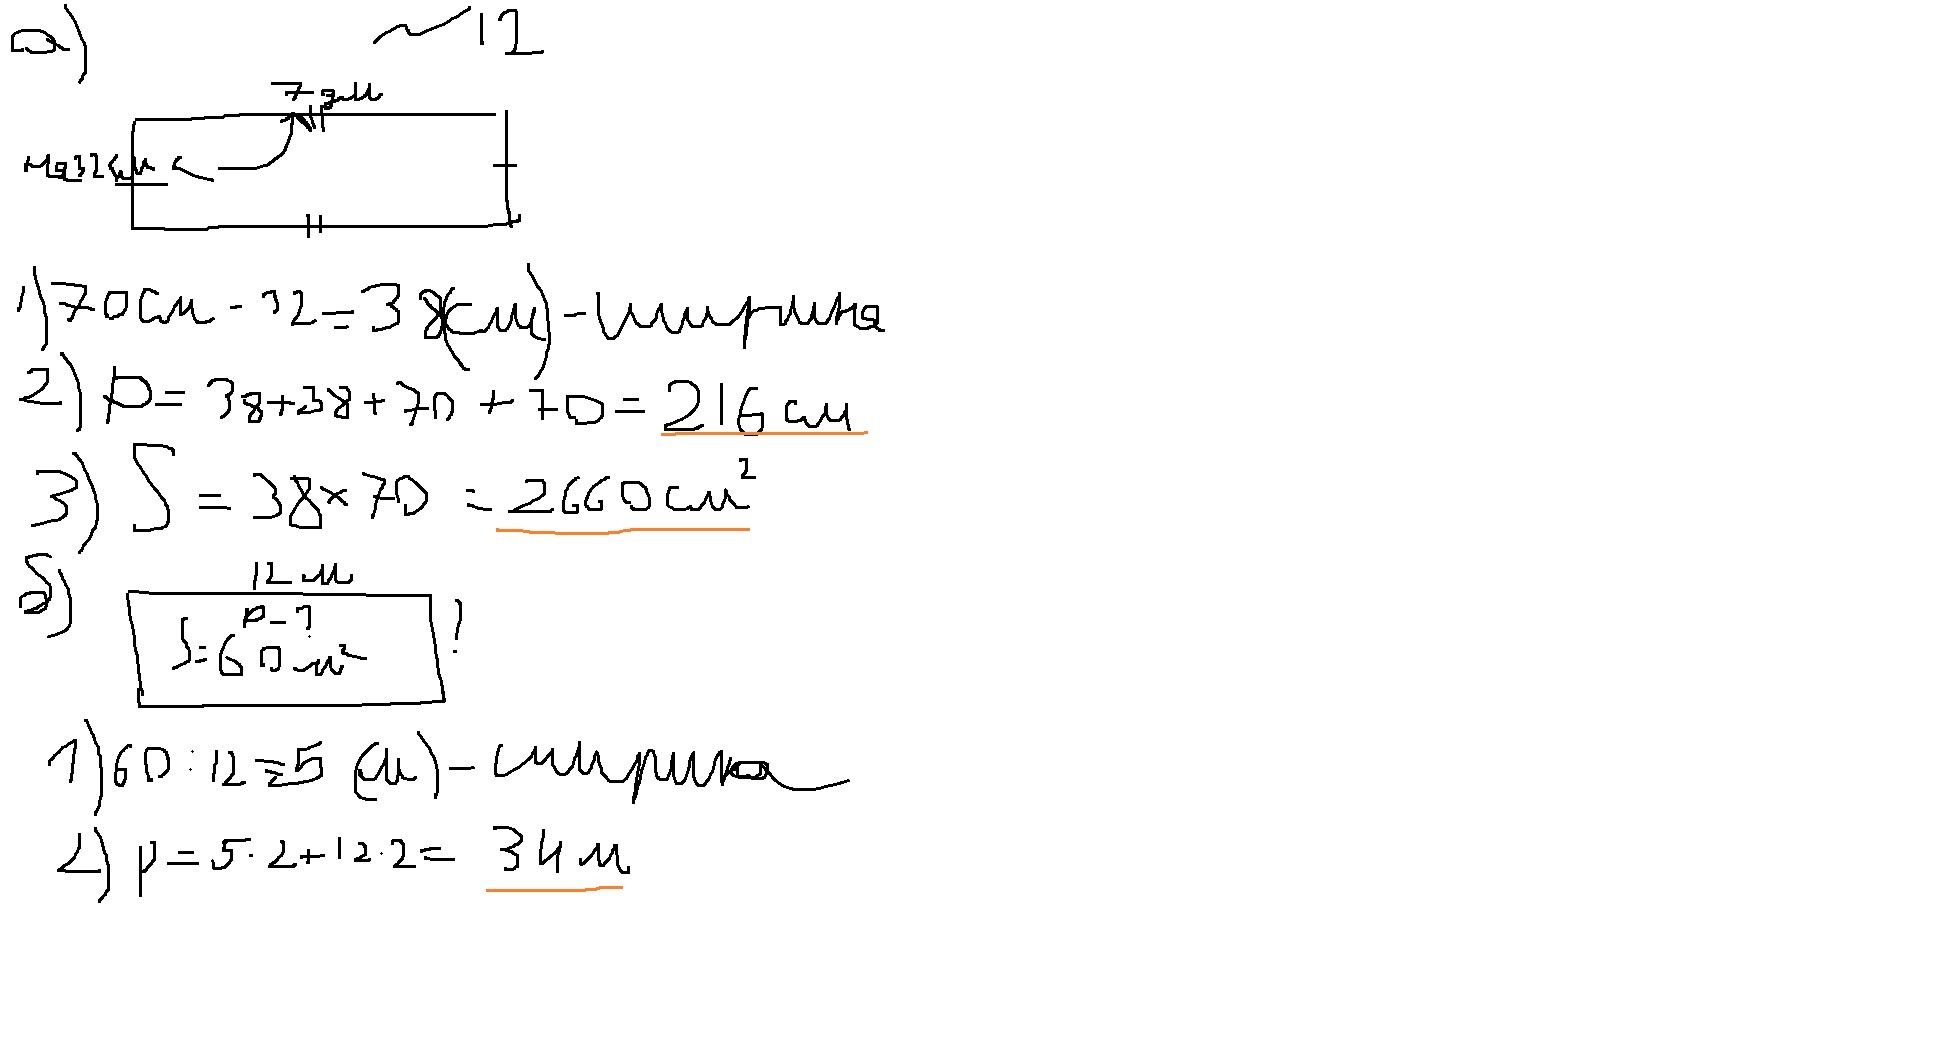 а) ~12
7 дм
на 32 см <
1) 70 см - 32 = 38 (см) - ширина
2) p = 38+38+70+70 = 216 см
3) S = 38×70 = 2660 см²
б)
12 м
p-? ?
S=60 м²
1) 60:12=5 (м) - ширина
2) p=5·2+12·2= 34 м